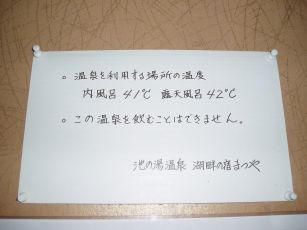 ○ 温泉を利用する場所の温度
内風呂 41℃ 露天風呂 42℃
○ この温泉を飲むことはできません。
池の湯温泉 湖畔の宿まつや